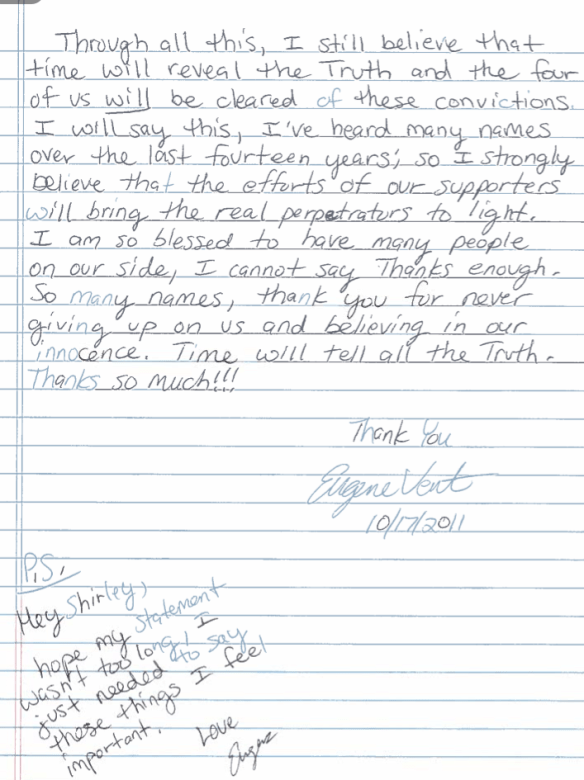 Through all this, I still believe that
time will reveal the Truth and the four
of us will be cleared of these convictions.
I will say this, I've heard many names
over the last fourteen years; so I strongly
believe that the efforts of our supporters
will bring the real perpetrators to light.
I am so blessed to have many people
on our side, I cannot say Thanks enough.
So many names, thank you for never
giving up on us and believing in our
innocence. Time will tell all the Truth.
Thanks so much!!!
Thank You
Eugene Vent
10/17/2011
P.S.
Hey Shirley,
hope my statement
wasn't too long! I
just needed to say
these things I feel
important.
Love
Eugene